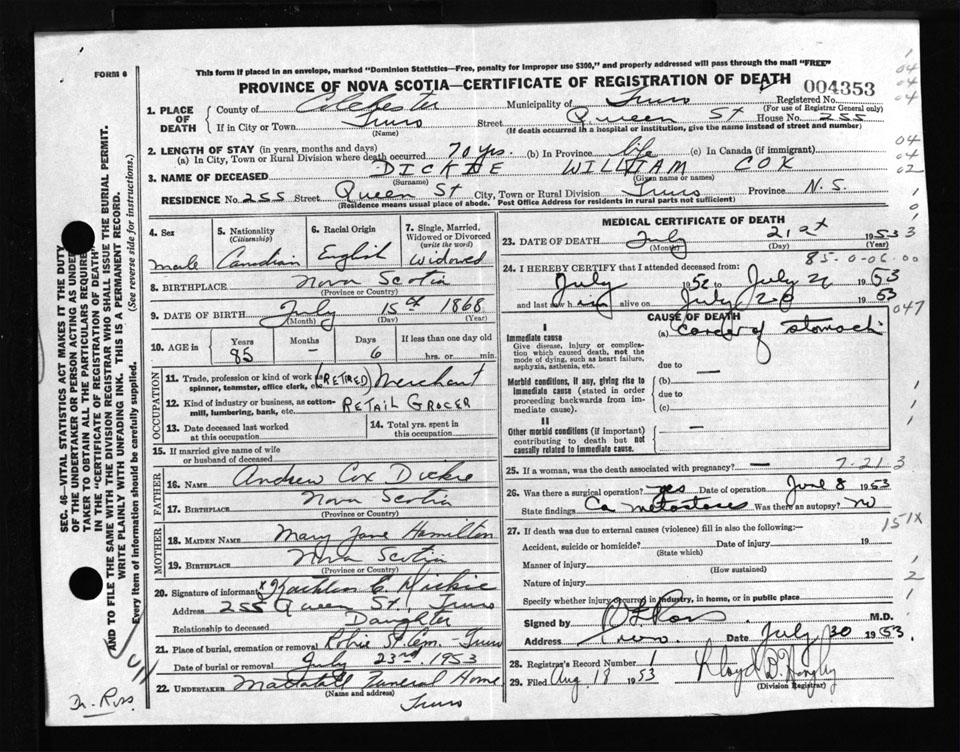 This form if placed in an envelope, marked "Dominion Statistics—Free, penalty for improper use $300," and properly addressed will pass through the mail "FREE"
FORM 6
PROVINCE OF NOVA SCOTIA—CERTIFICATE OF REGISTRATION OF DEATH
004353
Registered No.
(For use of Registrar General only)
1. PLACE OF DEATH
County of Colchester Municipality of Truro
If in City or Town Truro Street Queen St House No. 255
(Name) (If death occurred in a hospital or institution, give the name instead of street and number)
2. LENGTH OF STAY (in years, months and days)
(a) In City, Town or Rural Division where death occurred 70 yrs. (b) In Province life (c) In Canada (if immigrant)
3. NAME OF DECEASED DICKIE WILLIAM COX
(Surname) (Given name or names)
RESIDENCE No. 255 Street Queen St City, Town or Rural Division Truro Province N.S.
(Residence means usual place of abode. Post Office Address for residents in rural parts not sufficient)
4. Sex
male
5. Nationality
(Citizenship)
Canadian
6. Racial Origin
English
7. Single, Married, Widowed or Divorced
(write the word)
Widowed
8. BIRTHPLACE Nova Scotia
(Province or Country)
9. DATE OF BIRTH July 15th 1868
(Month) (Day) (Year)
10. AGE in
Years Months Days If less than one day old
85 — 6 hrs. or min.
OCCUPATION
11. Trade, profession or kind of work as spinner, teamster, office clerk, etc. (RETIRED) Merchant
12. Kind of industry or business, as cotton-mill, lumbering, bank, etc. RETAIL GROCER
13. Date deceased last worked at this occupation
14. Total yrs. spent in this occupation
15. If married give name of wife or husband of deceased
FATHER
16. NAME Andrew Cox Dickie
17. BIRTHPLACE Nova Scotia
(Province or Country)
MOTHER
18. MAIDEN NAME Mary Jane Hamilton
19. BIRTHPLACE Nova Scotia
(Province or Country)
20. Signature of informant x Kathleen C. Dickie
Address 255 Queen St, Truro
Relationship to deceased Daughter
21. Place of burial, cremation or removal Robie St. Cem. - Truro
Date of burial or removal July 23rd 1953
22. UNDERTAKER Mattatall Funeral Home
(Name and address)
Truro
MEDICAL CERTIFICATE OF DEATH
23. DATE OF DEATH July 21st 1953
(Month) (Day) (Year)
85-0-06.00
24. I HEREBY CERTIFY that I attended deceased from:
July 1952 to July 21 1953
and last saw him alive on July 20 1953
047
CAUSE OF DEATH
I
Immediate cause
Give disease, injury or complication which caused death, not the mode of dying, such as heart failure, asphyxia, asthenia, etc.
(a) Cancer of stomach
due to —
Morbid conditions, if any, giving rise to immediate cause (stated in order proceeding backwards from immediate cause).
(b)
due to
(c)
II
Other morbid conditions (if important) contributing to death but not causally related to immediate cause.
—
25. If a woman, was the death associated with pregnancy? —
7-21 3
26. Was there a surgical operation? yes Date of operation June 8 1953
State findings Ca metastases Was there an autopsy? no
151X
27. If death was due to external causes (violence) fill in also the following:—
Accident, suicide or homicide? Date of injury 19
(State which)
Manner of injury
(How sustained)
Nature of injury
Specify whether injury occurred in industry, in home, or in public place
Signed by Ross M.D.
Address Truro Date July 30 1953.
28. Registrar's Record Number 1
29. Filed Aug 18 1953 Lloyd D.
(Division Registrar)
SEC. 46—VITAL STATISTICS ACT MAKES IT THE DUTY
OF THE UNDERTAKER OR PERSON ACTING AS UNDER-
TAKER TO OBTAIN ALL THE PARTICULARS REQUIRED
IN THE "CERTIFICATE OF REGISTRATION OF DEATH"
AND TO FILE THE SAME WITH THE DIVISION REGISTRAR WHO SHALL ISSUE THE BURIAL PERMIT.
WRITE PLAINLY WITH UNFADING INK. THIS IS A PERMANENT RECORD.
Every item of Information should be carefully supplied. (See reverse side for instructions.)
Dr. Ross